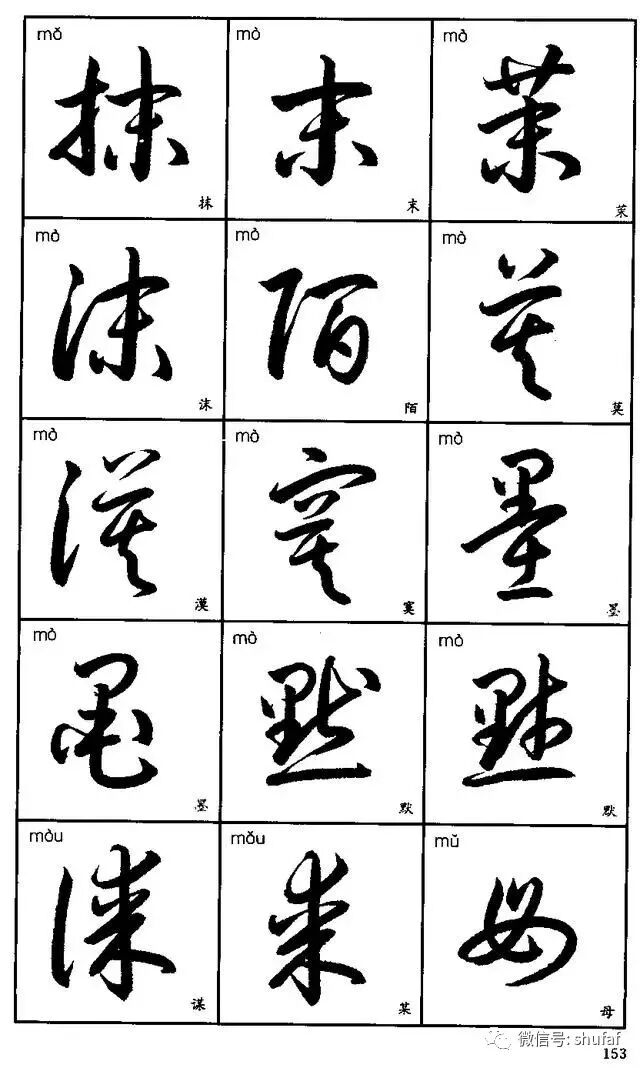 mǒ mò mò
抹 末 茉
抹 末 茉
mò mò mò
沫 陌 莫
沫 陌 莫
mò mò mò
漠 寞 墨
漠 寞 墨
mò mò mò
墨 默 默
墨 默 默
móu mǒu mǔ
谋 某 母
谋 某 母
微信号: shufaf
153